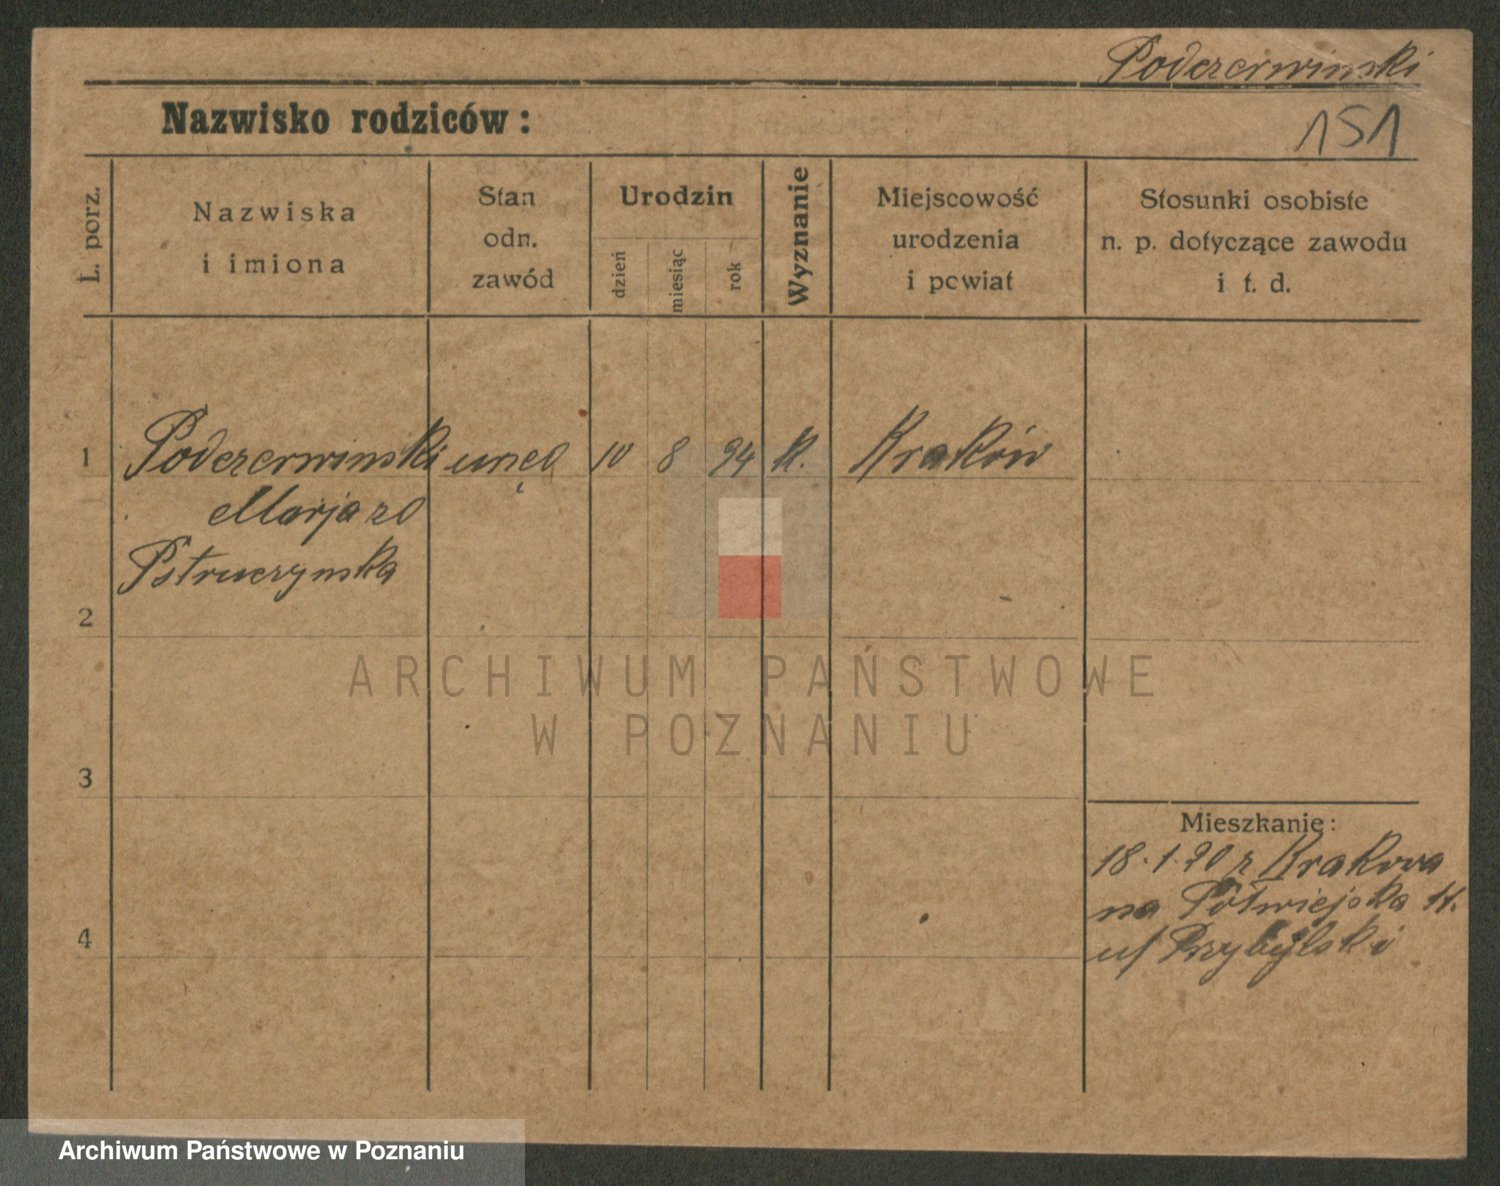 Podczerwinski
Nazwisko rodziców:
151
L. porz.
Nazwiska
i imiona
Stan
odn.
zawód
Urodzin
dzień
miesiąc
rok
Wyznanie
Miejscowość
urodzenia
i powiat
Stosunki osobiste
n. p. dotyczące zawodu
i t. d.
1 Podczerwinski 10 8 94 k. Kraków
Marja zd
Pstruczynska
2
ARCHIWUM PAŃSTWOWE
W POZNANIU
3
Mieszkanie:
18.1.20 z Krakowa
na Półwiejska
4
u/ Przybylski
Archiwum Państwowe w Poznaniu